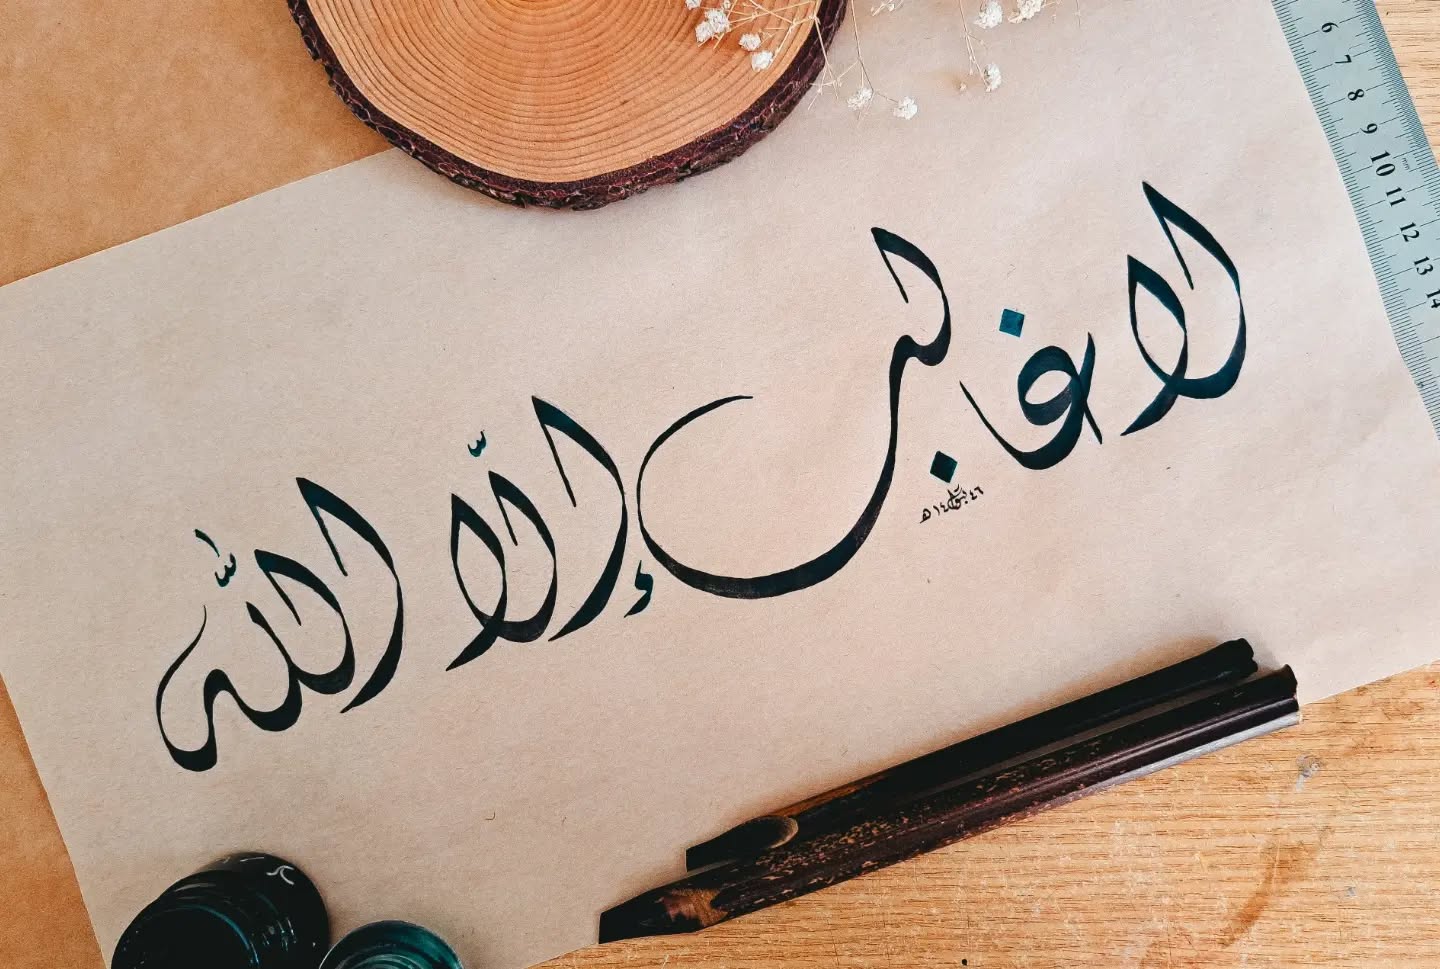 لا غالب إلّا اللّٰه
١٤٤٦هـ
6 7 8 9 10 11 12 13 14
mm